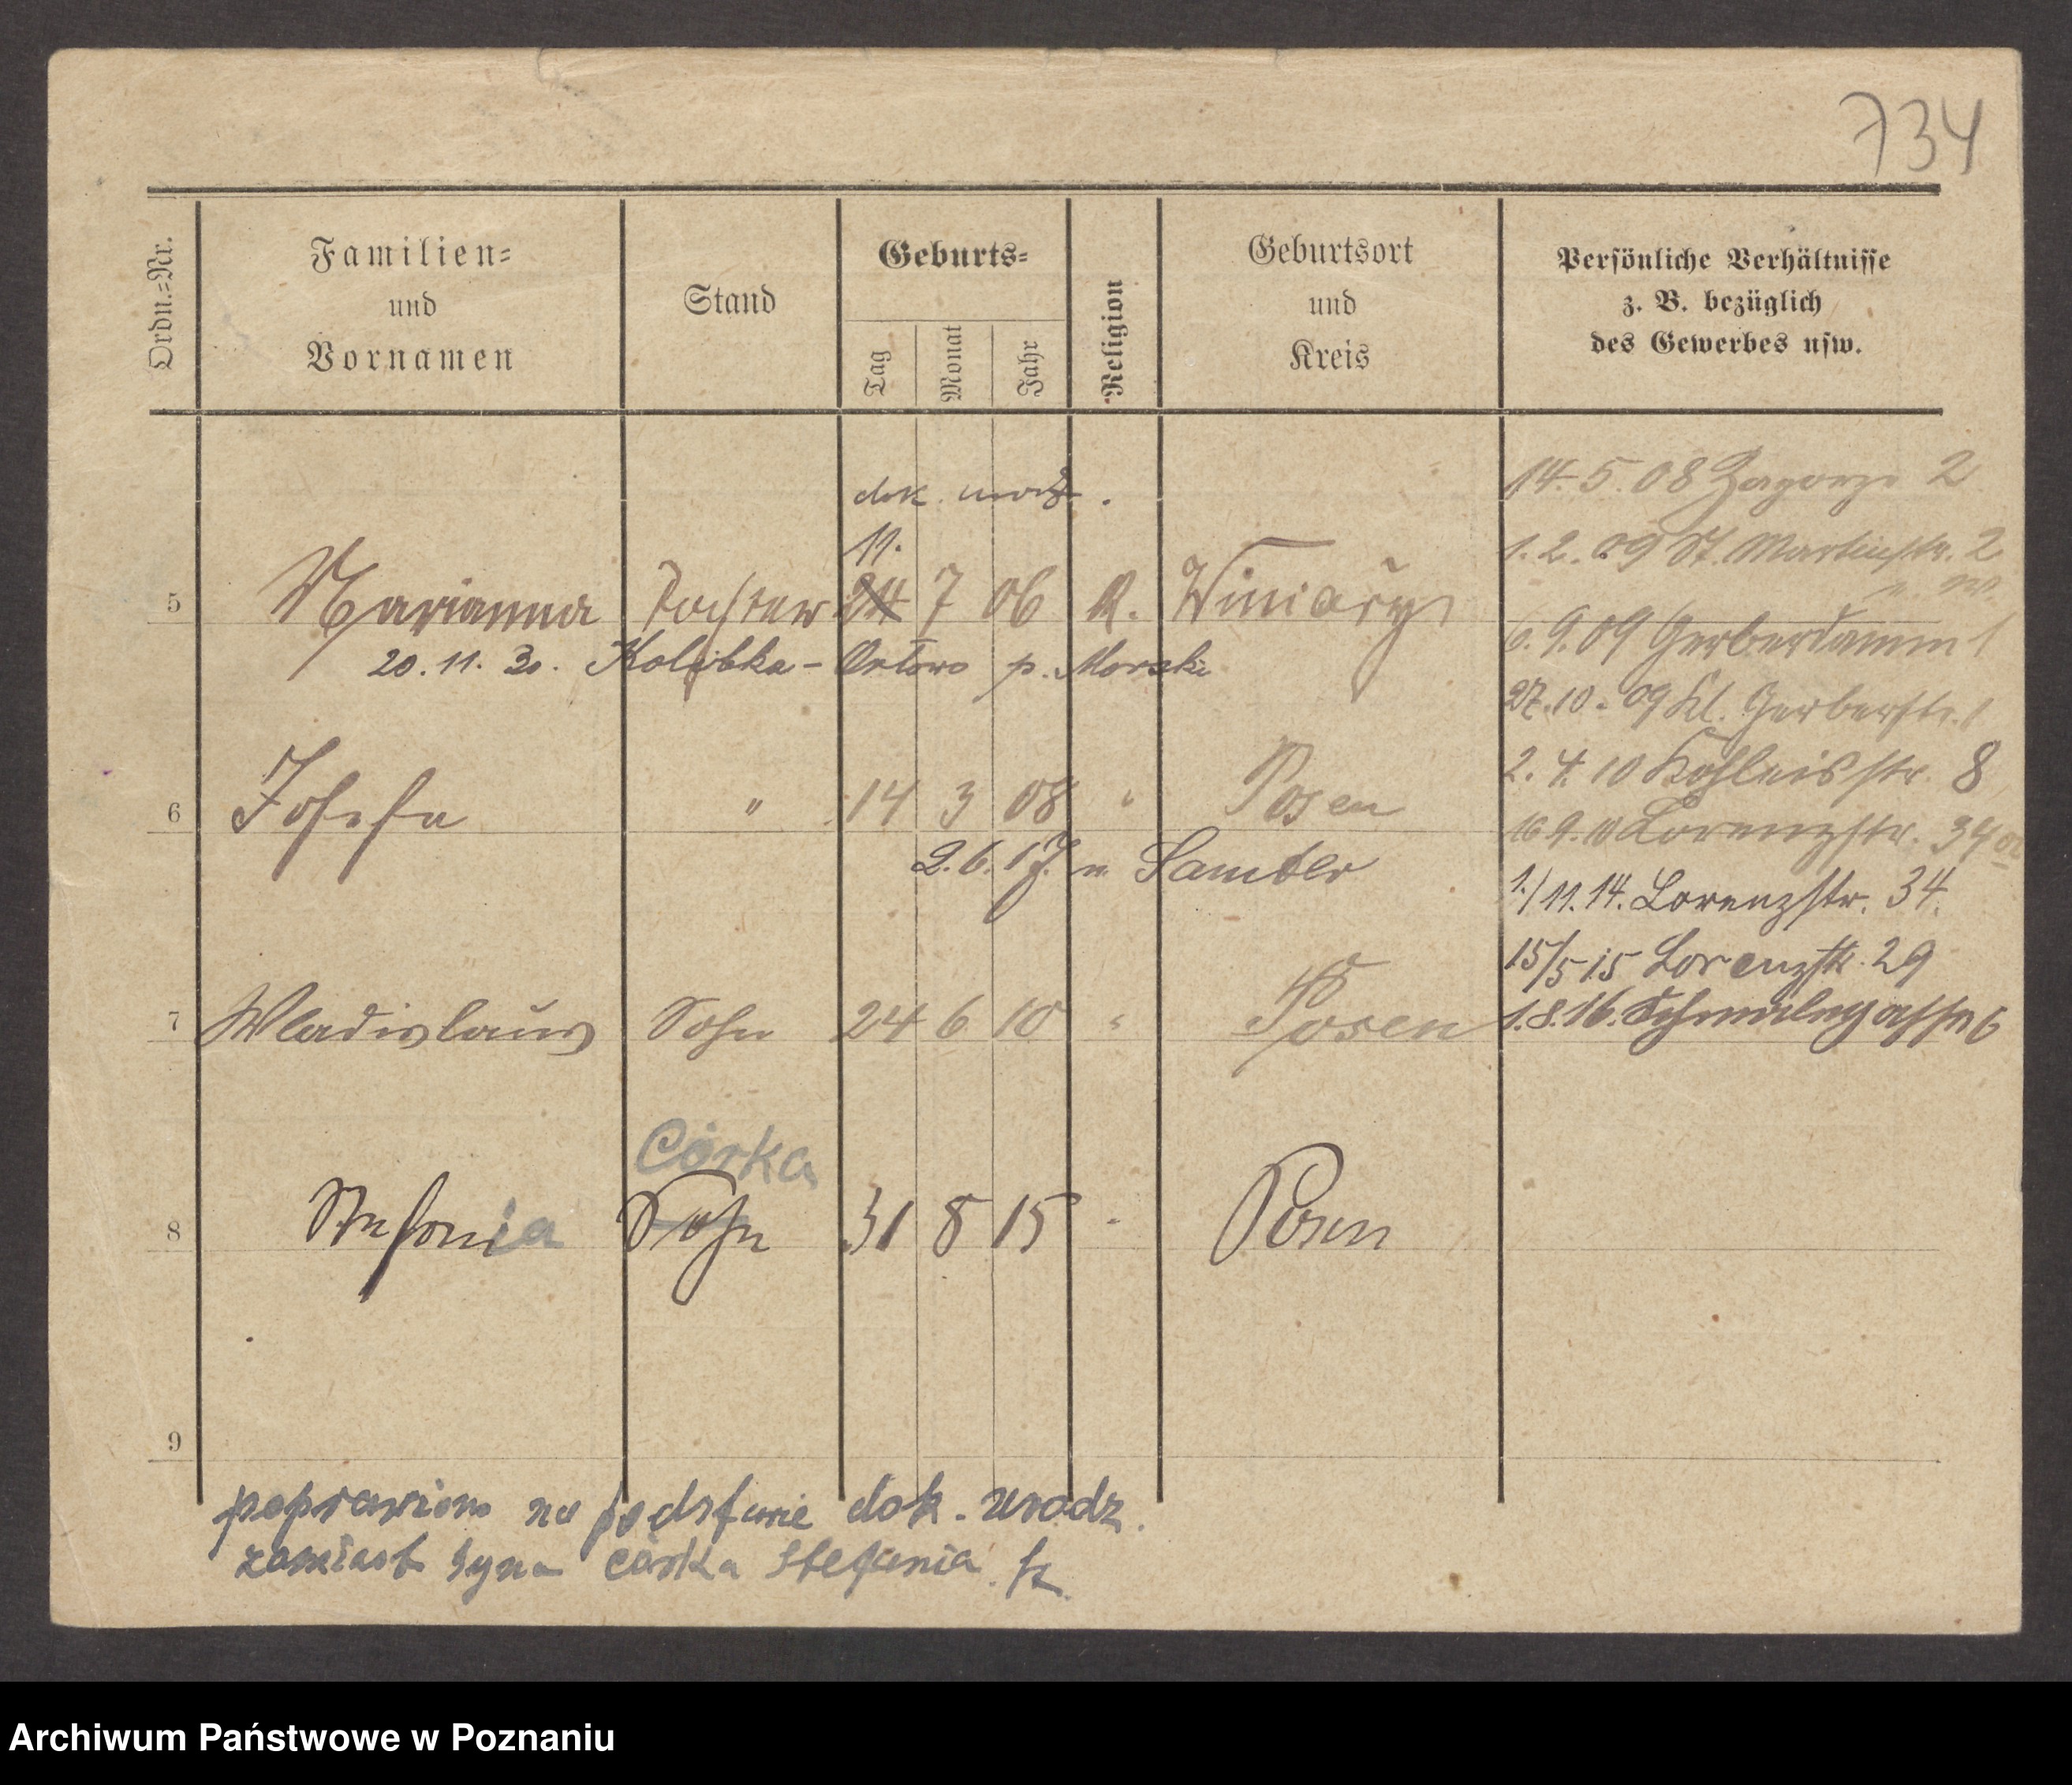 734
Ordn.-Nr.
Familien-
und
Vornamen
Stand
Geburts-
Tag
Monat
Jahr
Religion
Geburtsort
und
Kreis
Persönliche Verhältnisse
z. B. bezüglich
des Gewerbes usw.
dok. urodz.
11.
5 Marianna Tochter 24 7 06 K. Winiary
20.11.30. Kolibka - Orłowo p. Morski
6 Josefa " 14 3 08 " Posen
2.6.17. n. Samter
7 Wladislaus Sohn 24 6 10 " Posen
Córka
8 Stefania Sohn 31 8 15 " Posen
9
14.5.08 Zagorze 2
1.2.09 St. Martinstr. 2
6.9.09 Gerberdamm 1
27.10.09 Kl. Gerberstr. 1
2.4.10 Kohleisstr. 8
16.9.10 Lorenzstr. 34
1./11.14. Lorenzstr. 34.
15/5 15 Lorenzstr. 29
1.8.16. 6
poprawiono na podstawie dok. urodz.
zamiast syna córka Stefania
Archiwum Państwowe w Poznaniu